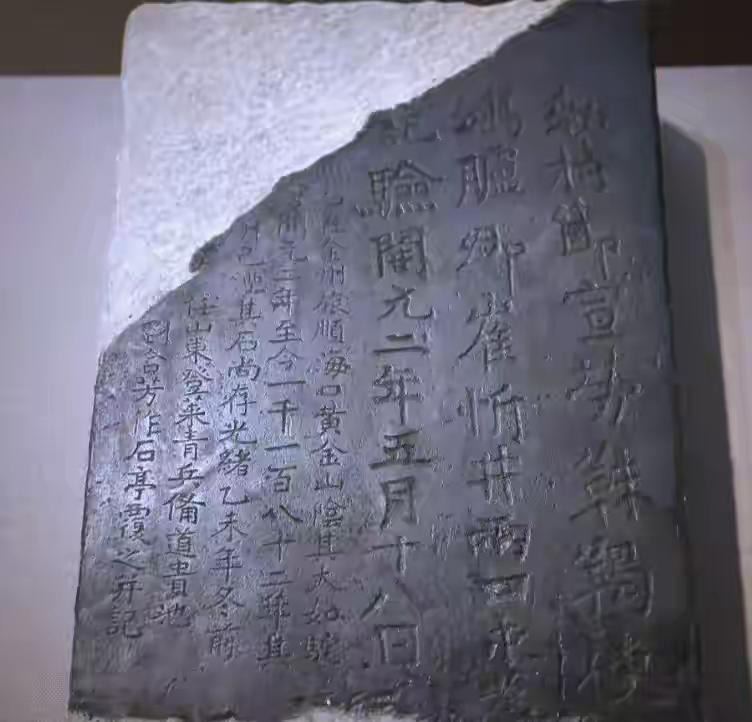 勅持節宣勞靺羯使
鴻臚卿崔忻井兩口永為
記驗開元二年五月十八日
石在金州旅順海口黃金山陰其大如駝
開元二年至今一千一百八十二年其
井已湮其石尚存光緒乙未年冬前
任山東登萊青兵備道貴池
劉含芳作石亭覆之并記